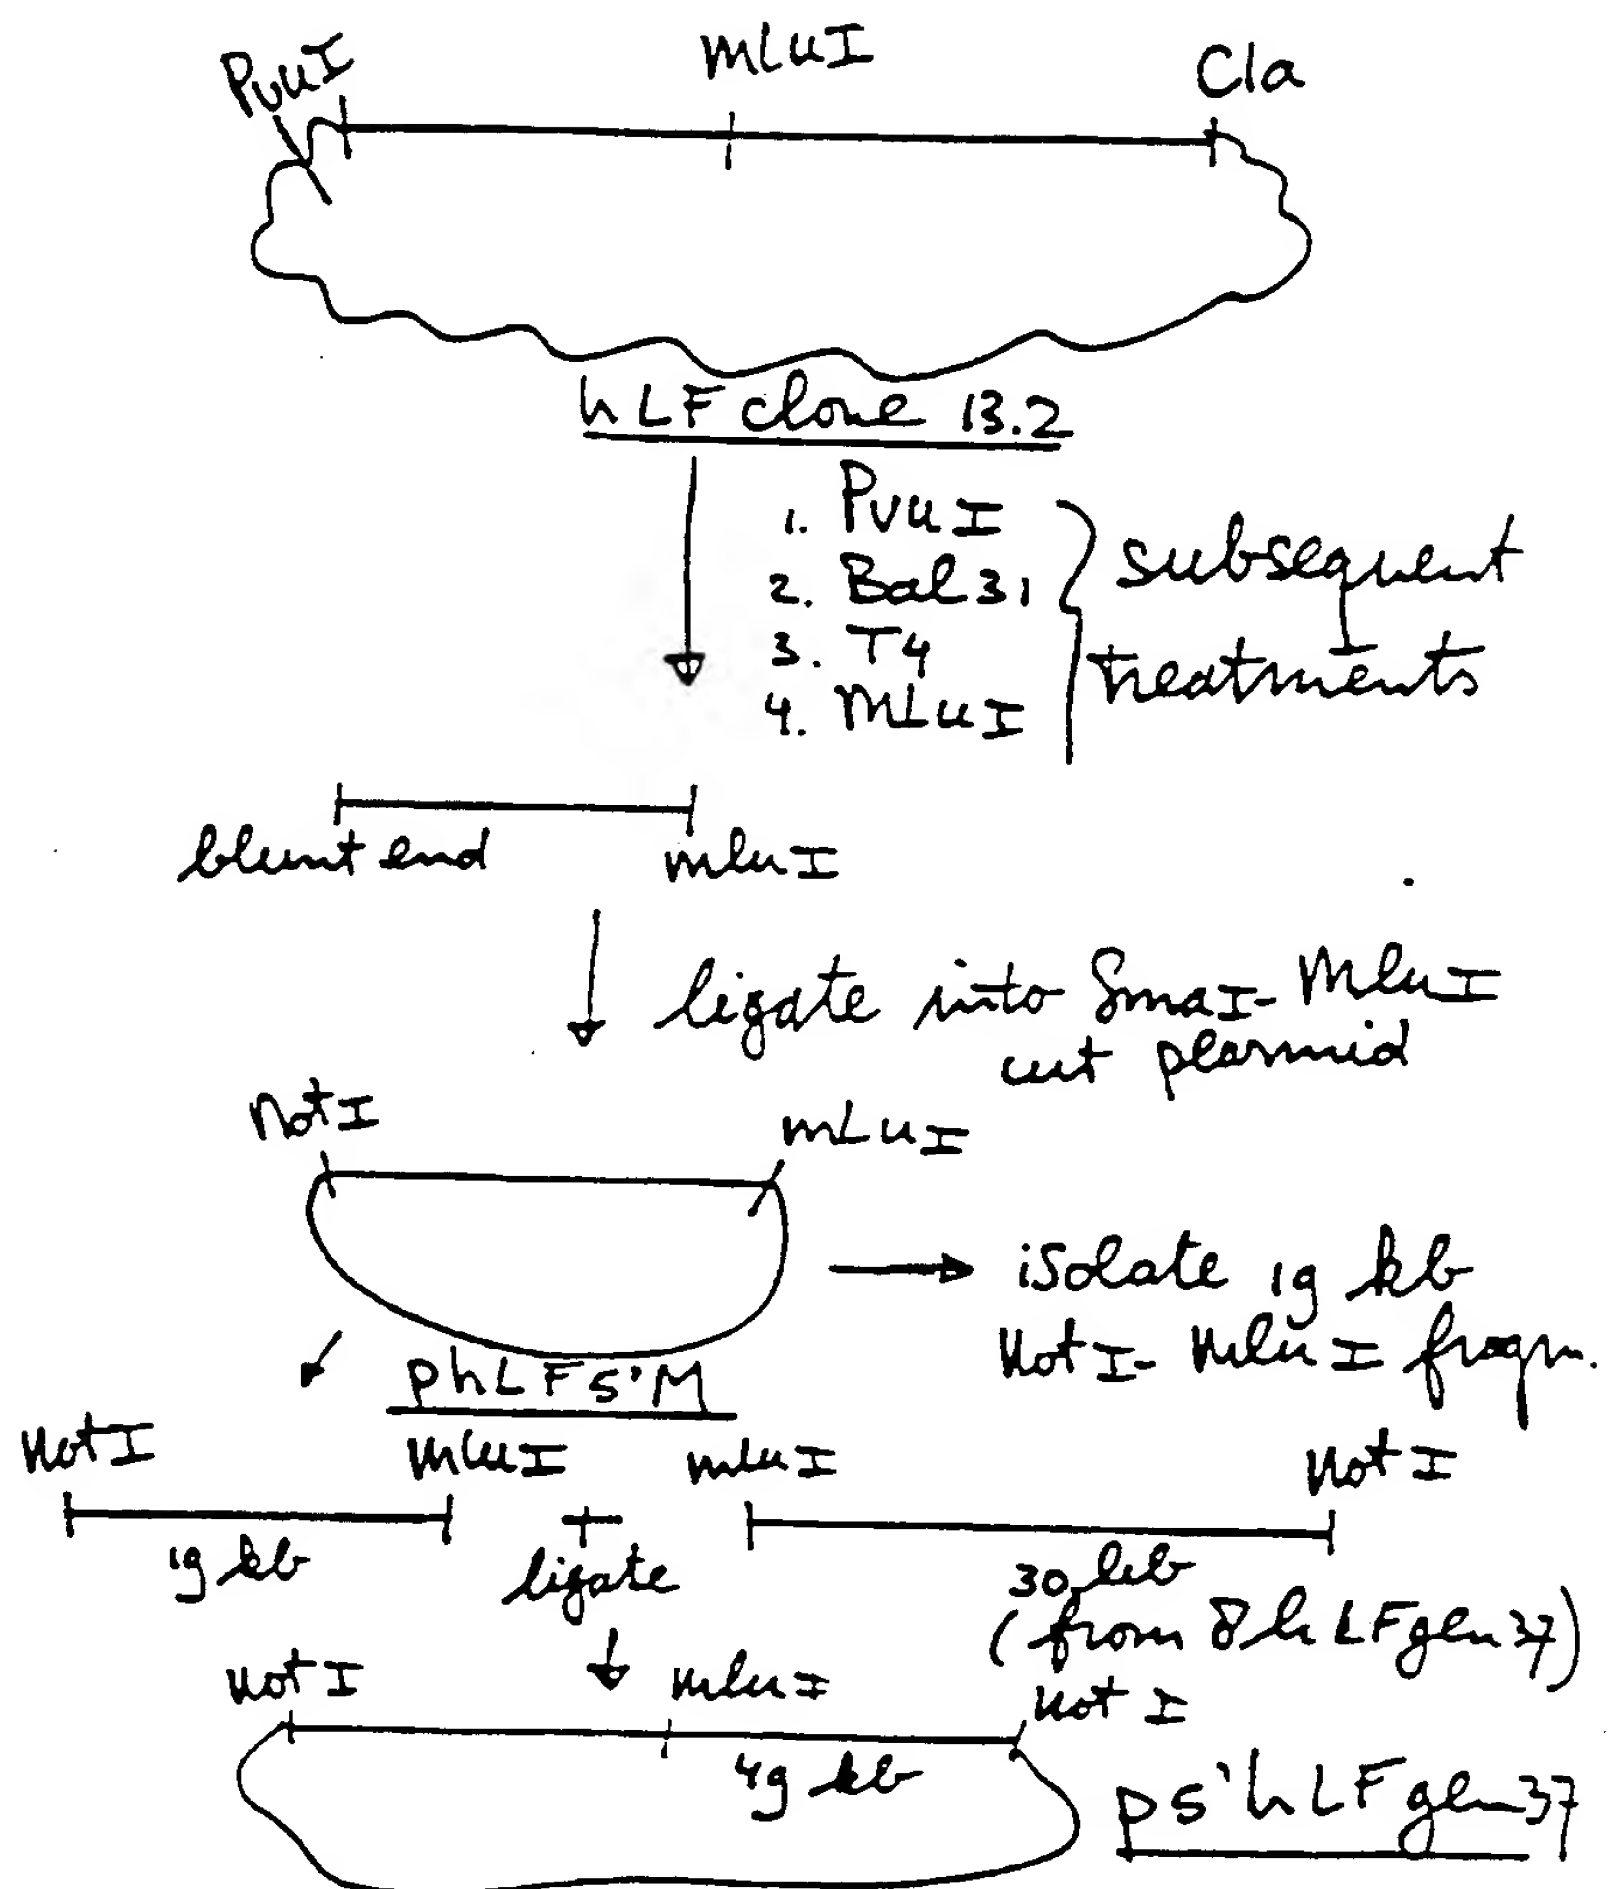 PvuI mluI Cla
hLF clone 13.2
1. PvuI
2. Bal31
3. T4
4. mLuI
subsequent
treatments
blunt end mluI
ligate into SmaI- MluI
cut plasmid
NotI mLuI
isolate 19 kb
NotI- mluI fragm.
phLF5'M
NotI mluI mluI NotI
19 kb + 30 kb
ligate
(from 8hLFgen37)
NotI mluI NotI
49 kb
p5'hLFgen37